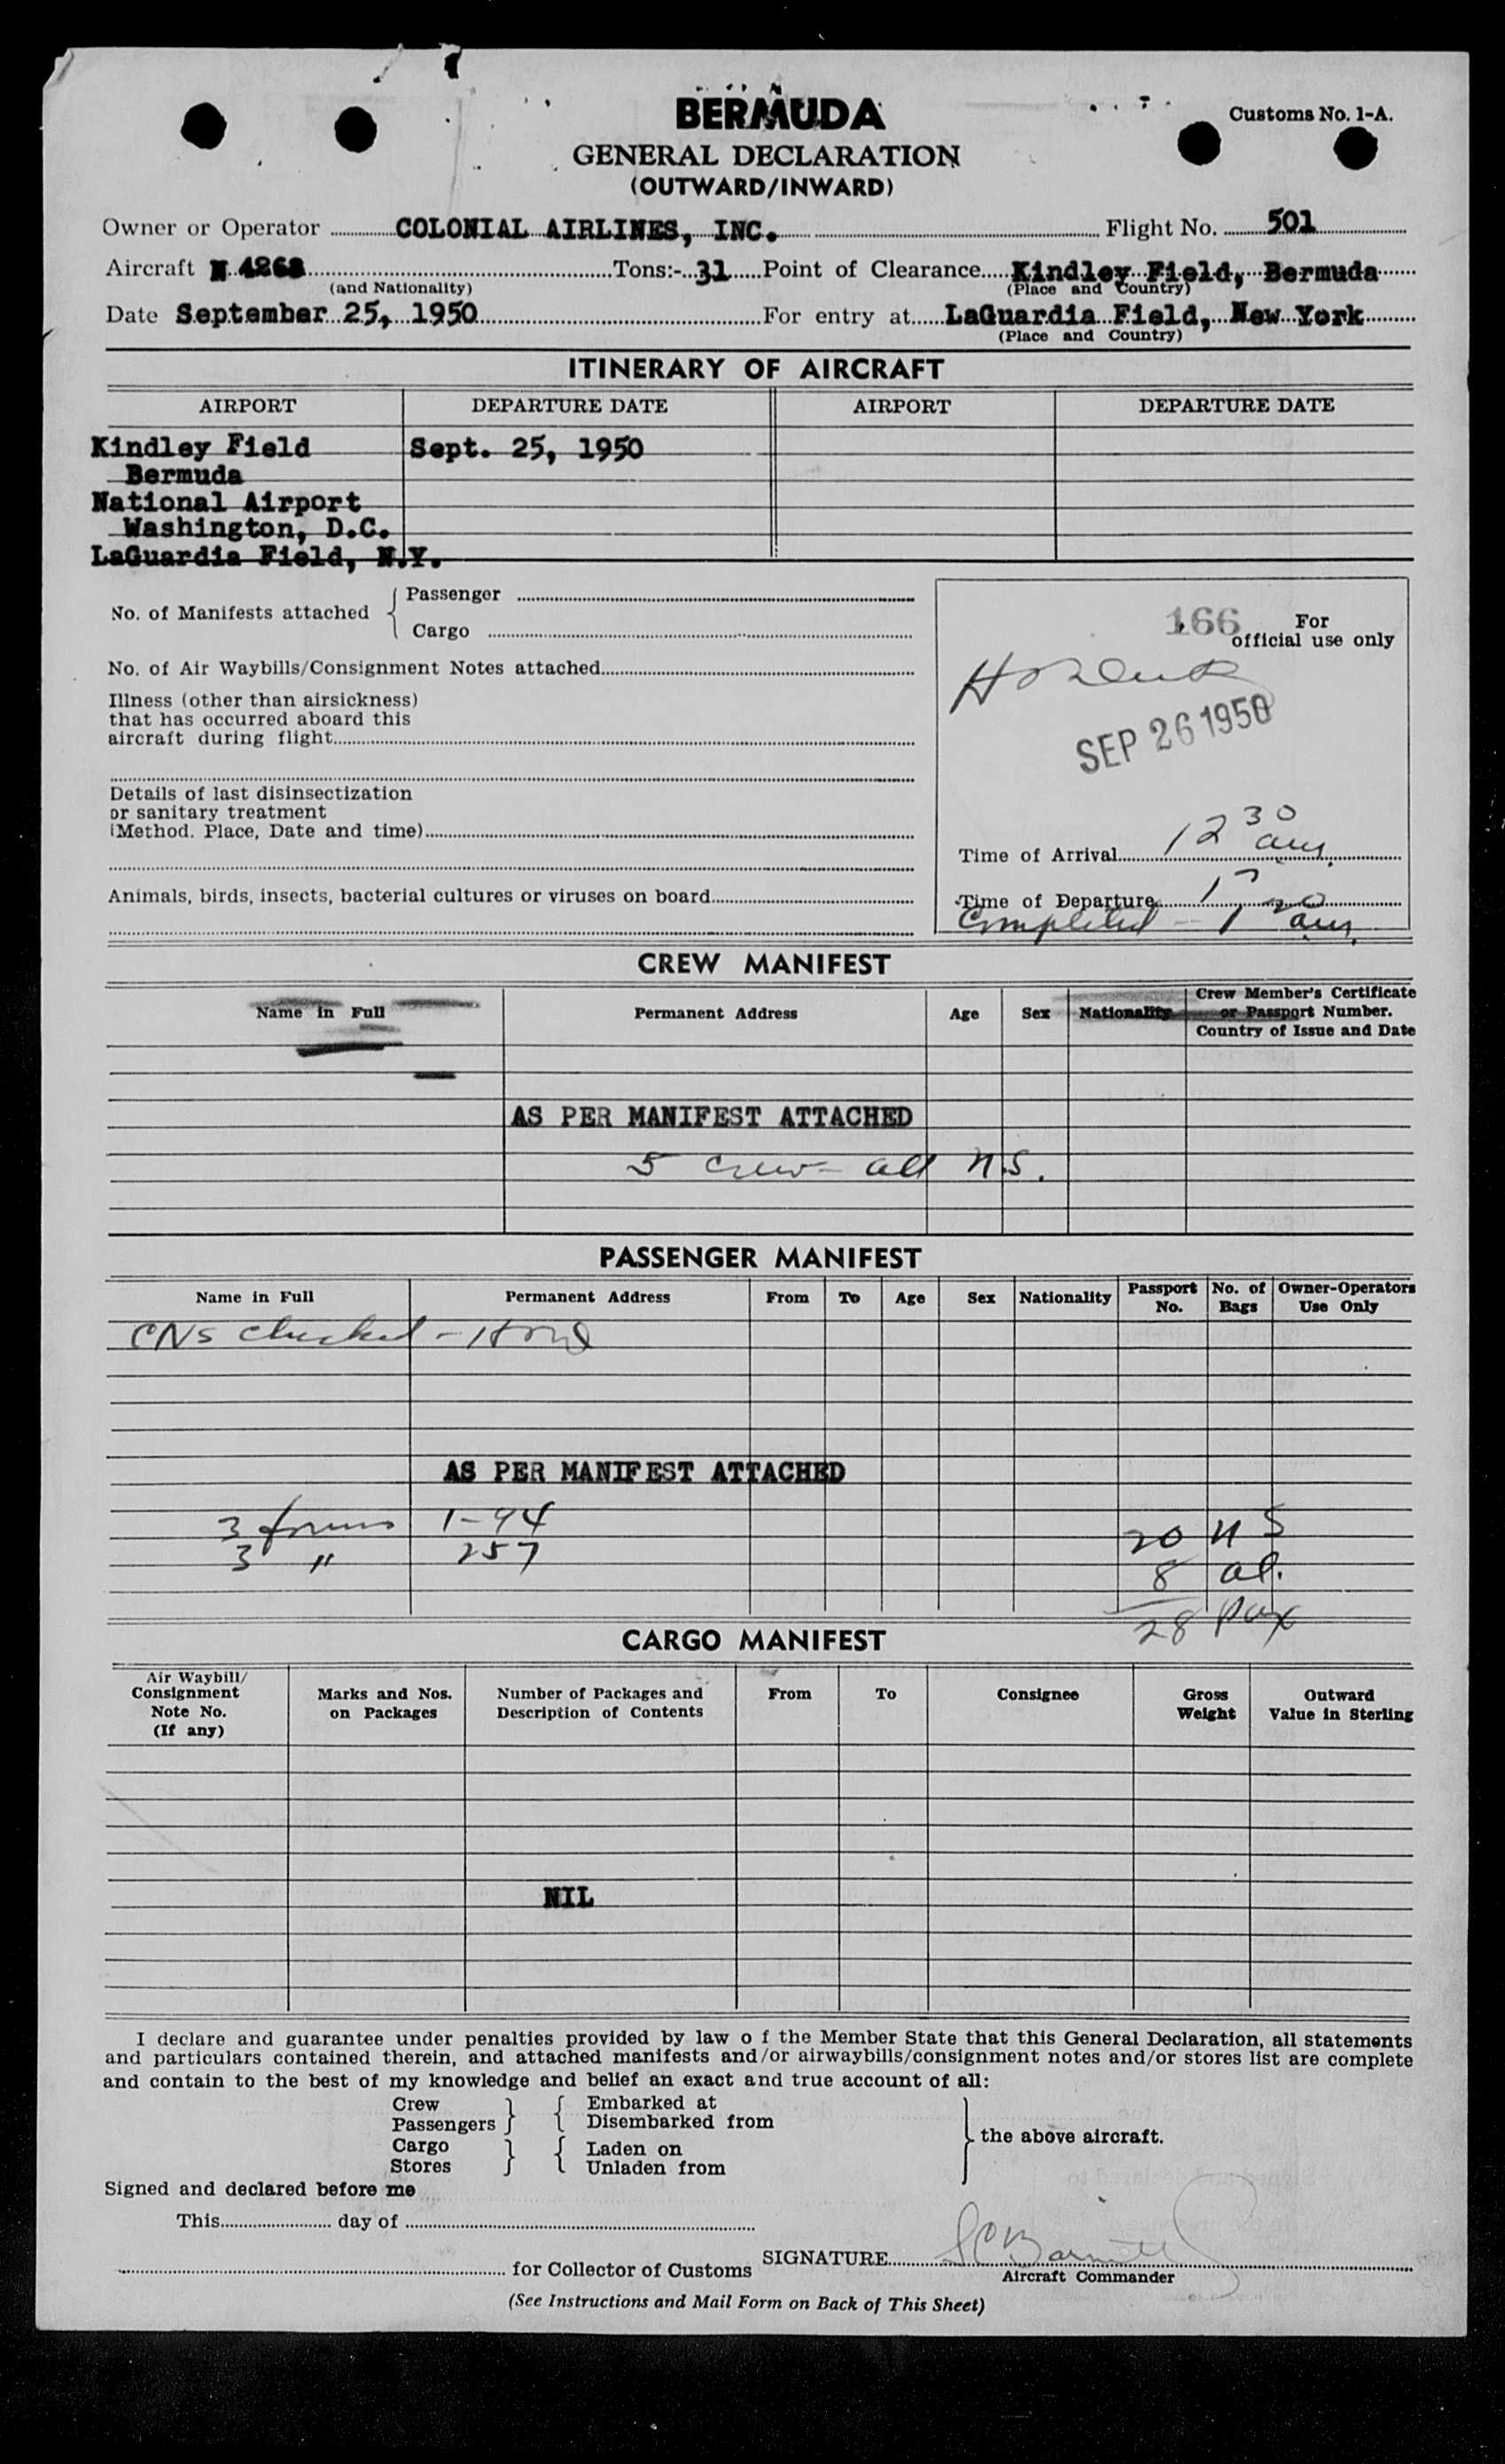 BERMUDA
Customs No. 1-A.
GENERAL DECLARATION
(OUTWARD/INWARD)
Owner or Operator COLONIAL AIRLINES, INC. Flight No. 501
Aircraft N 4268 Tons:- 31 Point of Clearance Kindley Field, Bermuda
(and Nationality) (Place and Country)
Date September 25, 1950 For entry at LaGuardia Field, New York
(Place and Country)
ITINERARY OF AIRCRAFT
AIRPORT DEPARTURE DATE AIRPORT DEPARTURE DATE
Kindley Field Sept. 25, 1950
Bermuda
National Airport
Washington, D.C.
LaGuardia Field, N.Y.
No. of Manifests attached
Passenger
Cargo
No. of Air Waybills/Consignment Notes attached
Illness (other than airsickness)
that has occurred aboard this
aircraft during flight
Details of last disinsectization
or sanitary treatment
(Method. Place, Date and time)
Animals, birds, insects, bacterial cultures or viruses on board
166 For
official use only
SEP 26 1950
Time of Arrival 12 30 am.
Time of Departure
Completed - 1 20 am.
CREW MANIFEST
Name in Full Permanent Address Age Sex Nationality Crew Member's Certificate
or Passport Number.
Country of Issue and Date
AS PER MANIFEST ATTACHED
5 crew - all U.S.
PASSENGER MANIFEST
Name in Full Permanent Address From To Age Sex Nationality Passport No. No. of Bags Owner-Operators Use Only
checked -
AS PER MANIFEST ATTACHED
3 forms I-94
3 " 257
20 U S
8 al.
28 pax
CARGO MANIFEST
Air Waybill/
Consignment
Note No.
(If any)
Marks and Nos.
on Packages
Number of Packages and
Description of Contents
From To Consignee
Gross
Weight
Outward
Value in Sterling
NIL
I declare and guarantee under penalties provided by law o f the Member State that this General Declaration, all statements
and particulars contained therein, and attached manifests and/or airwaybills/consignment notes and/or stores list are complete
and contain to the best of my knowledge and belief an exact and true account of all:
Crew Embarked at
Passengers Disembarked from
Cargo Laden on
Stores Unladen from
the above aircraft.
Signed and declared before me
This day of
for Collector of Customs
SIGNATURE
Aircraft Commander
(See Instructions and Mail Form on Back of This Sheet)